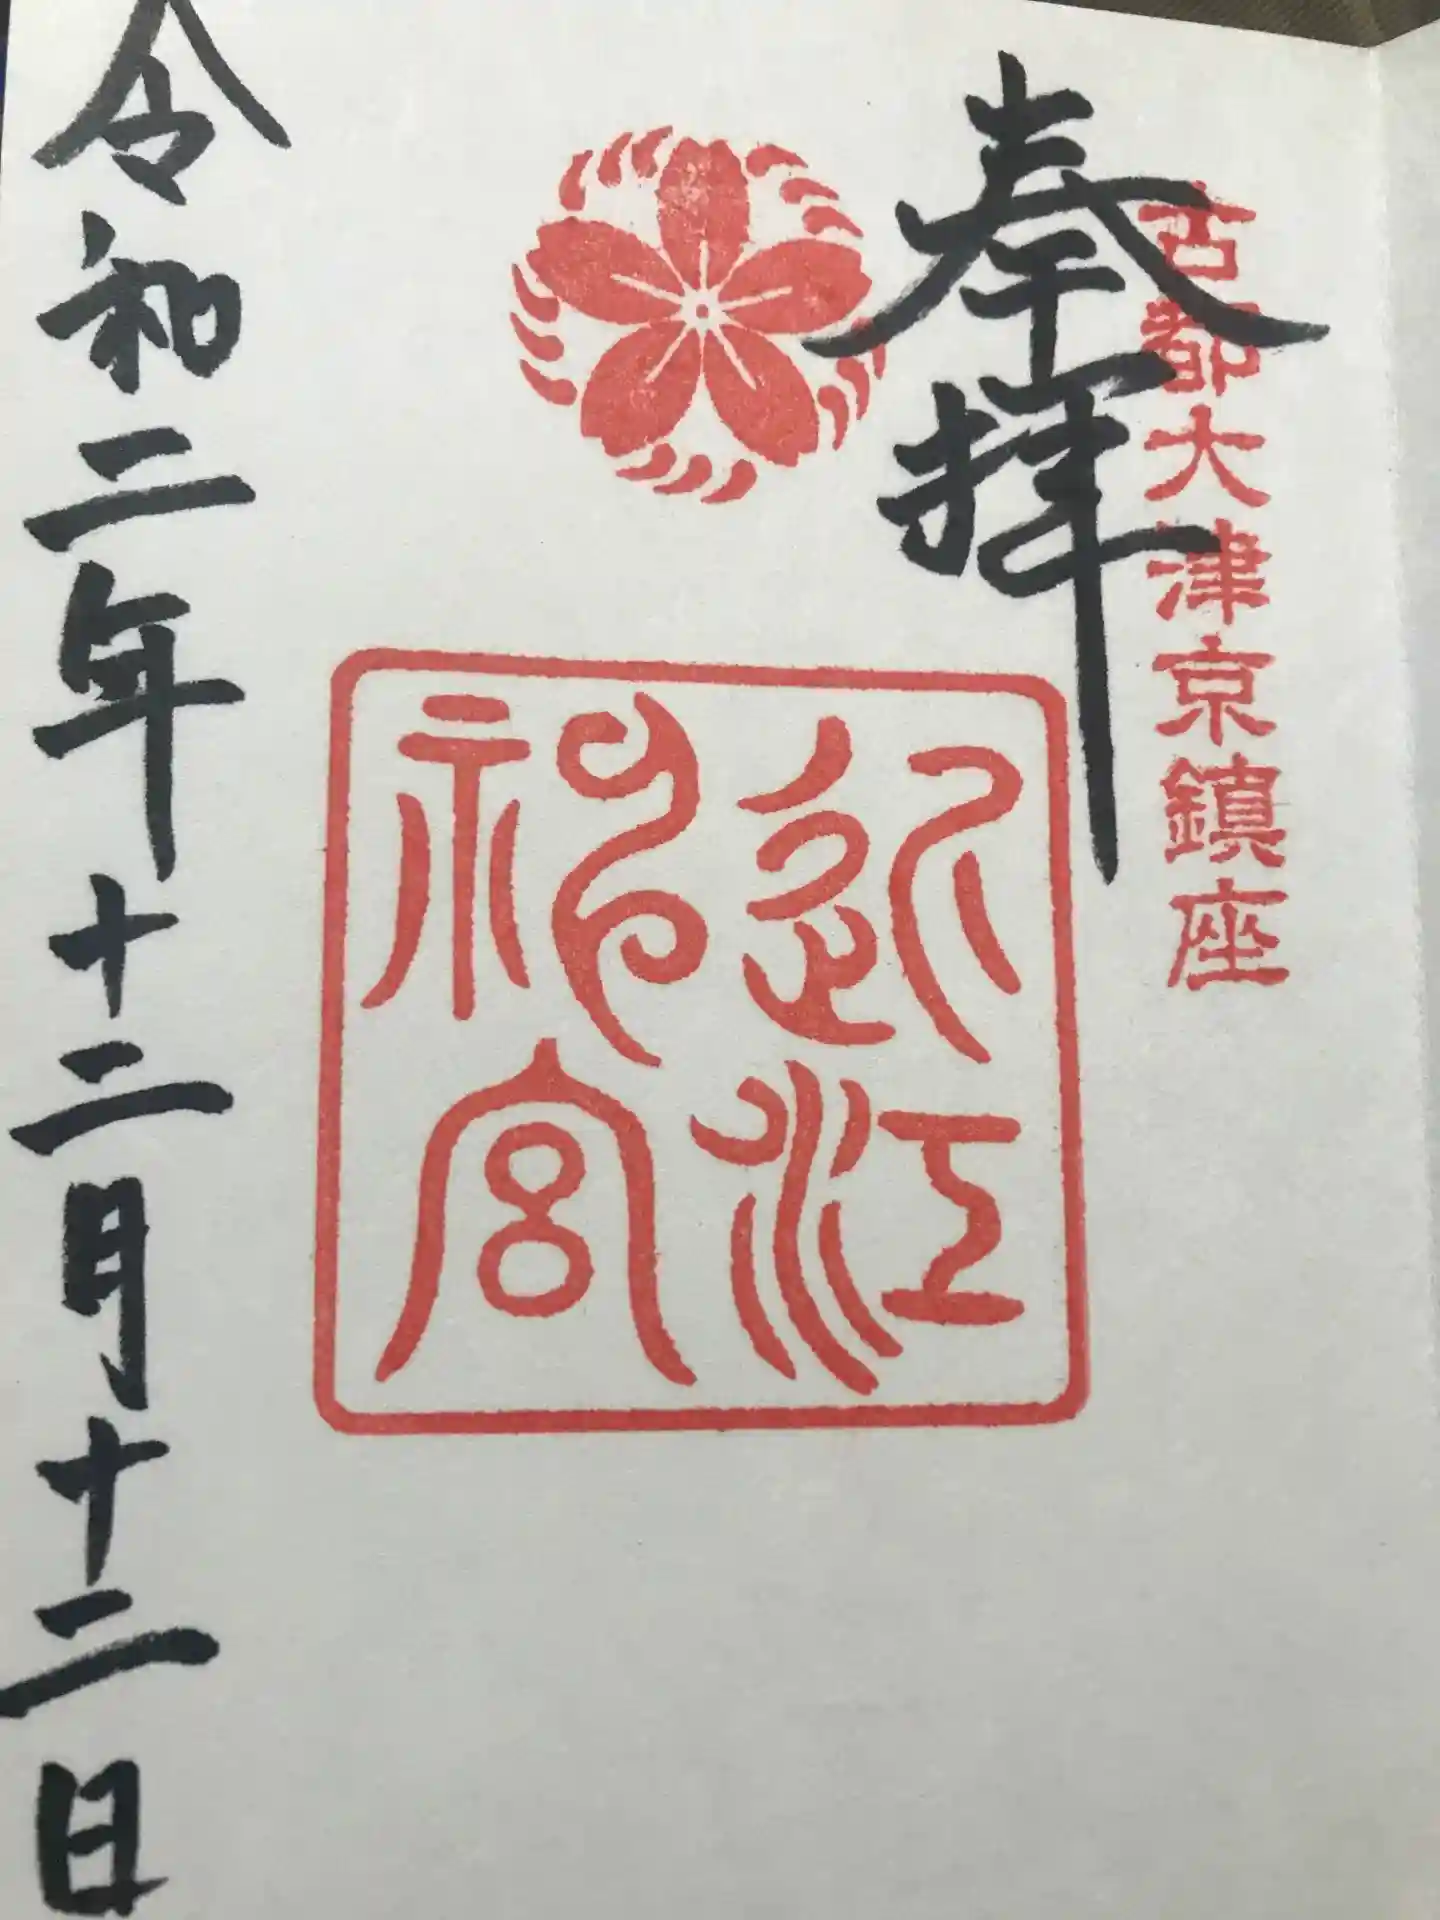 古都大津京鎮座
奉拝
近江
神宮
令和二年十二月十二日